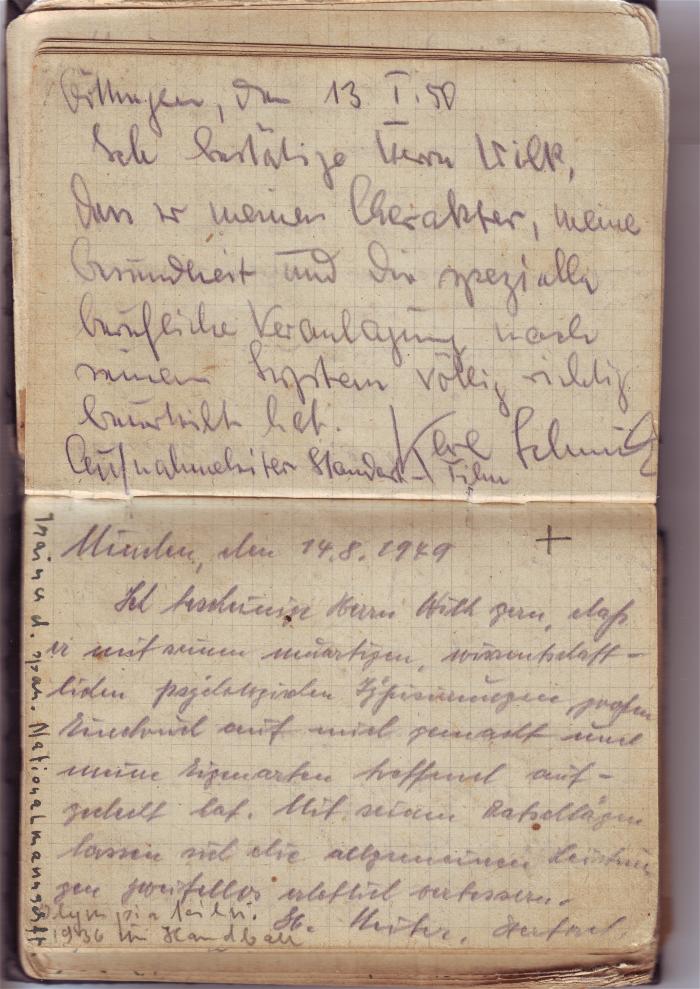 Göttingen, den 13 I. 50
Ich bestätige Herrn Wilk,
dass er meinen Charakter, meine
Gesundheit und die spezielle
berufliche Veranlagung nach
seinem System völlig richtig
beurteilt hat.
Karl Schmidt
Aufnahmeleiter Standard-Film
Minden, den 14.8.1949
Ich bescheinige Herrn Wilk gern, daß
er mit seinen neuartigen, wissenschaft-
lichen psychologischen Typisierungen großen
Eindruck auf mich gemacht und
meine Eigenarten treffend auf-
gedeckt hat. Mit seinen Ratschlägen
lassen sich die allgemeinen Leistun-
gen zweifellos erheblich verbessern.
Olympiateiln.
1936 in Handball
Trainer d. span. Nationalmannschaft